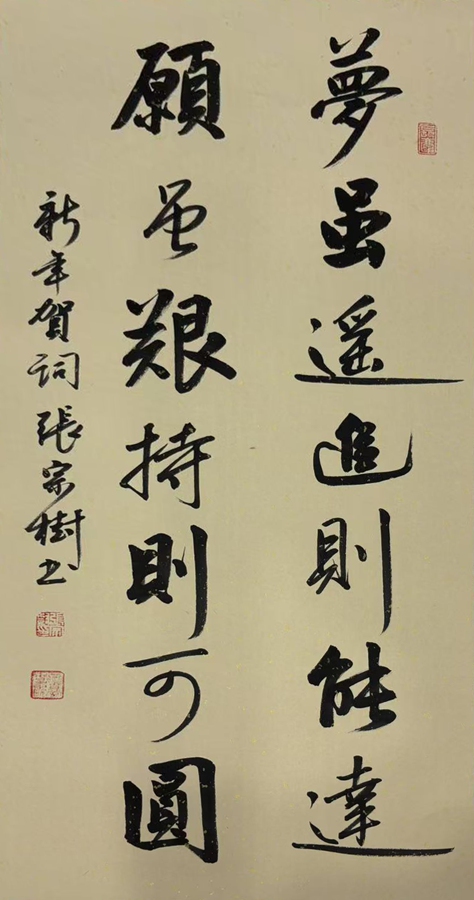 夢虽遥追則能達
願虽艱持則可圓
新年賀詞張宗樹书